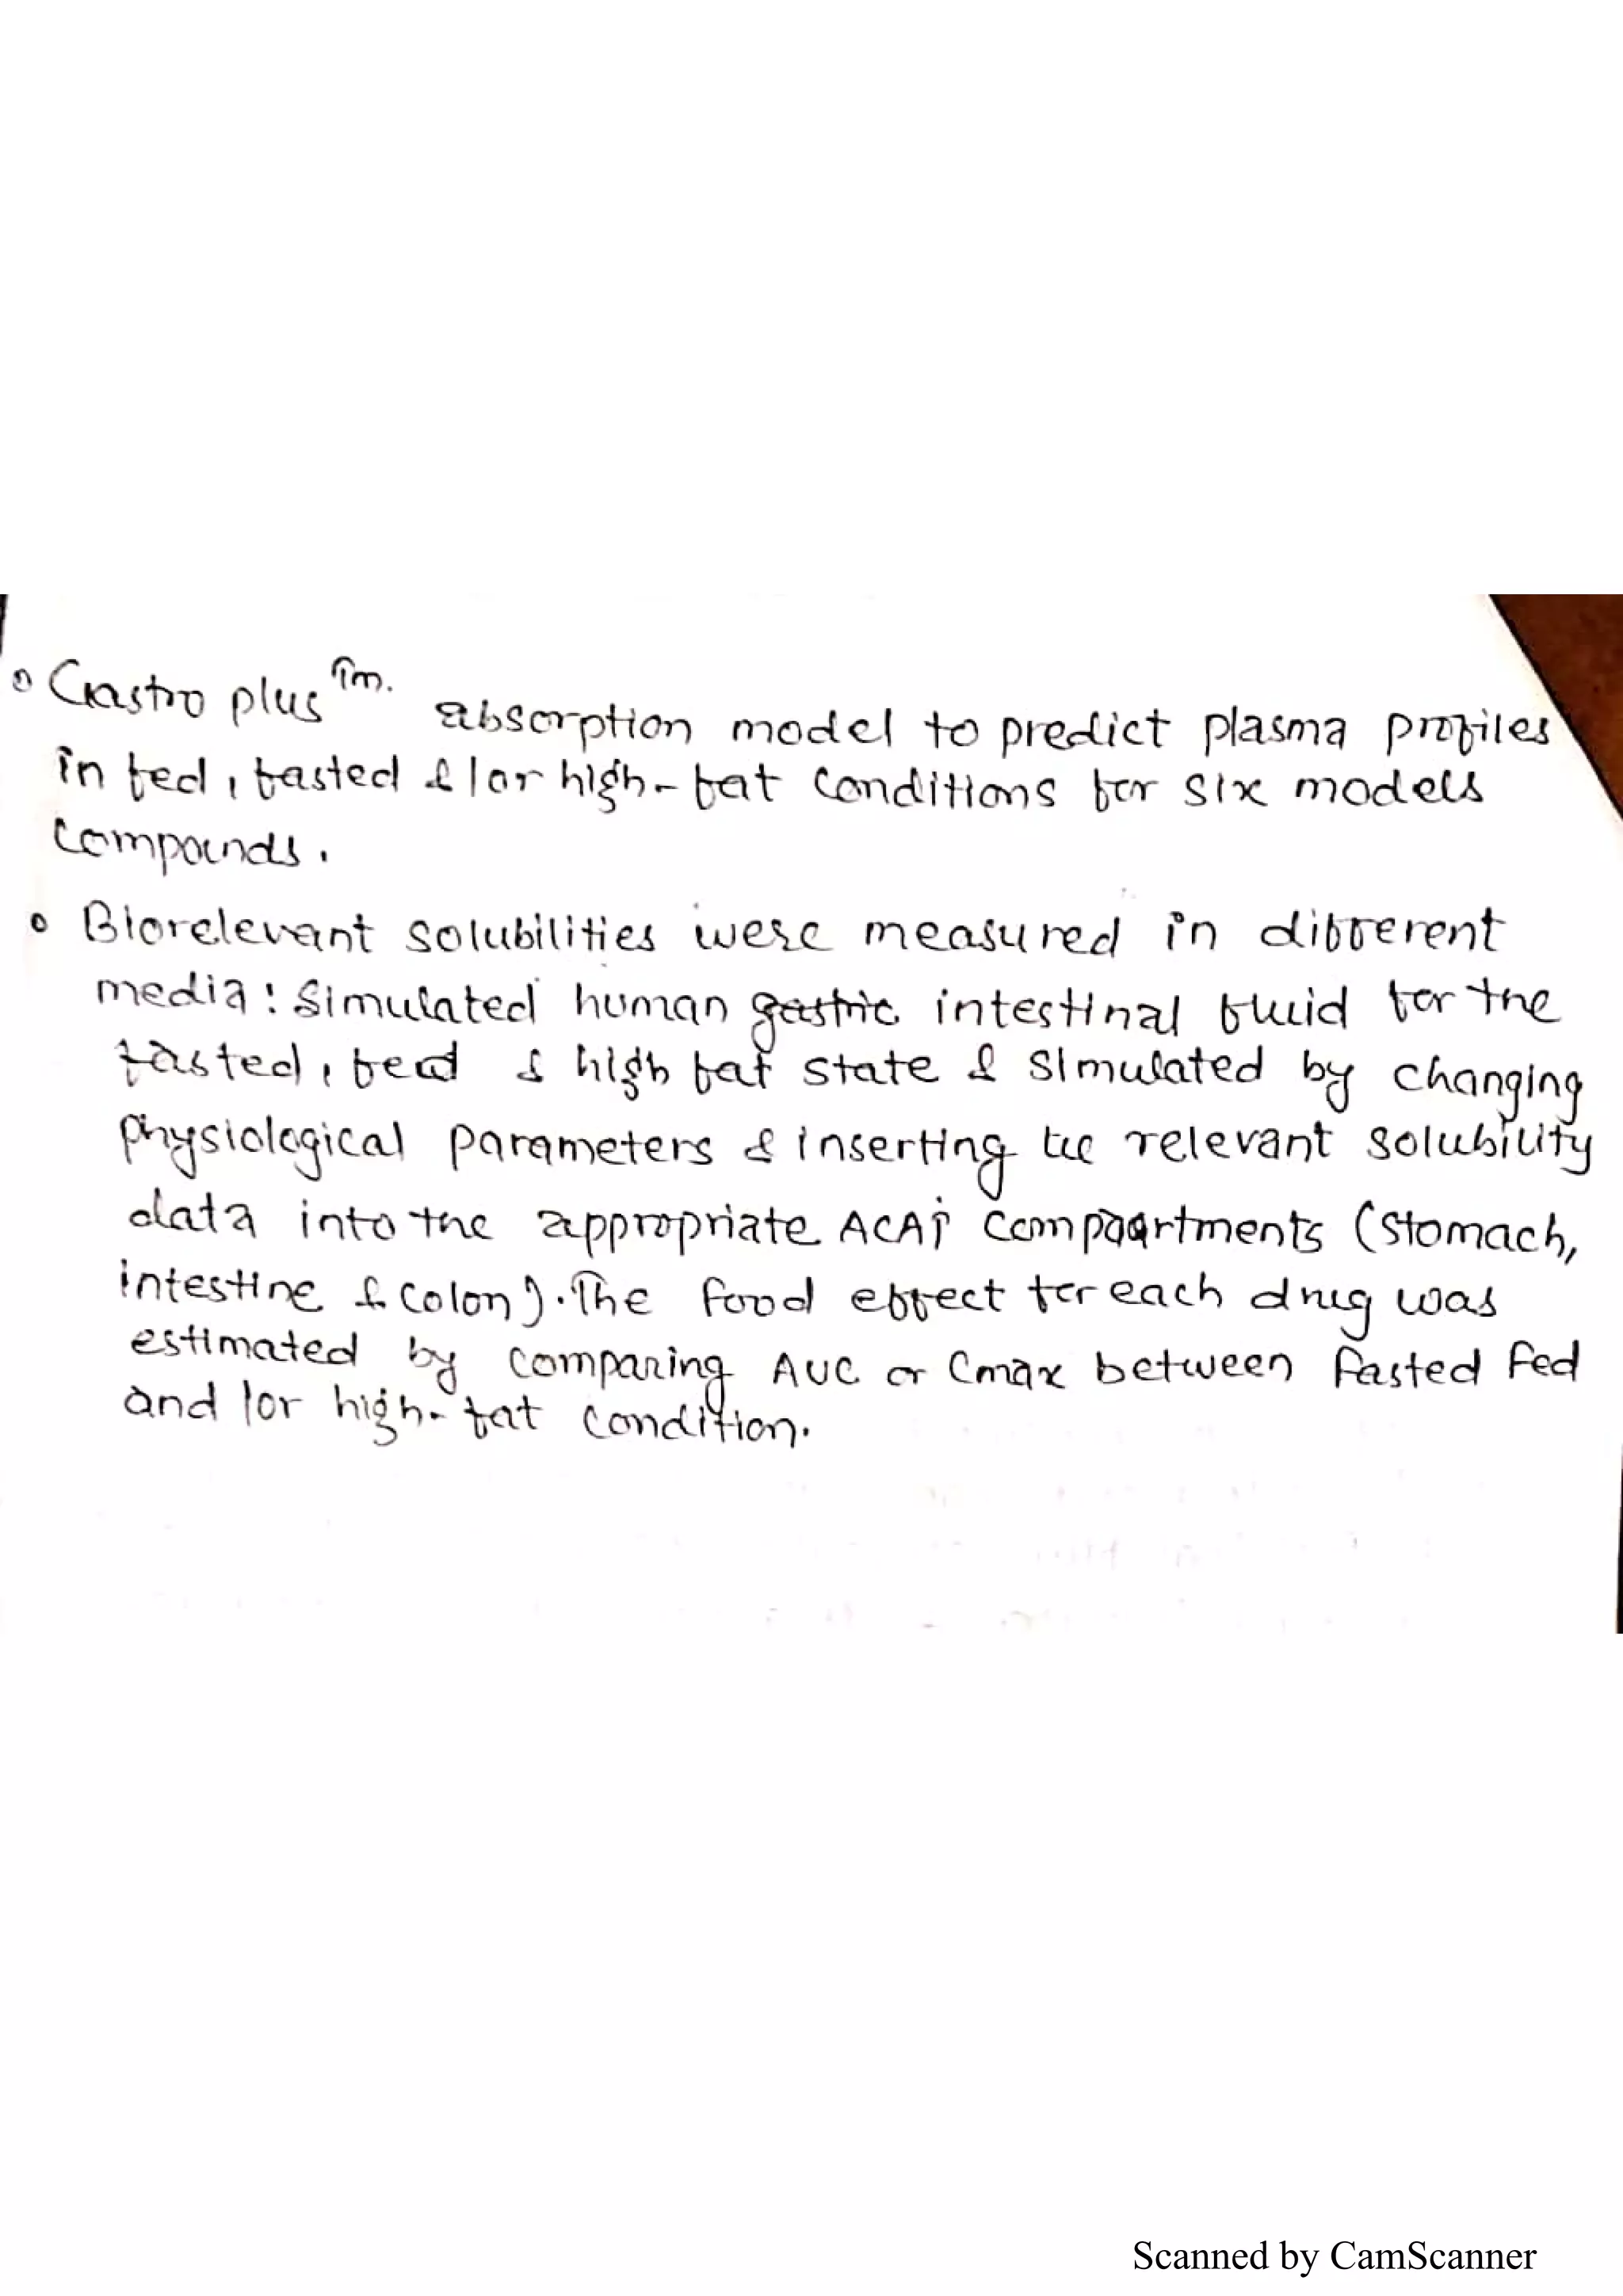 • Gastro plus Tm. absorption model to predict plasma profiles
in fed, fasted & / or high-fat conditions for six models
compounds.
• Biorelevant solubilities were measured in different
media: Simulated human gastric intestinal fluid for the
fasted, fed & high fat state & simulated by changing
physiological parameters & inserting the relevant solubility
data into the appropriate ACAT compartments (stomach,
intestine & colon). The food effect for each drug was
estimated by comparing AUC or Cmax between fasted fed
and / or high-fat condition.
Scanned by CamScanner